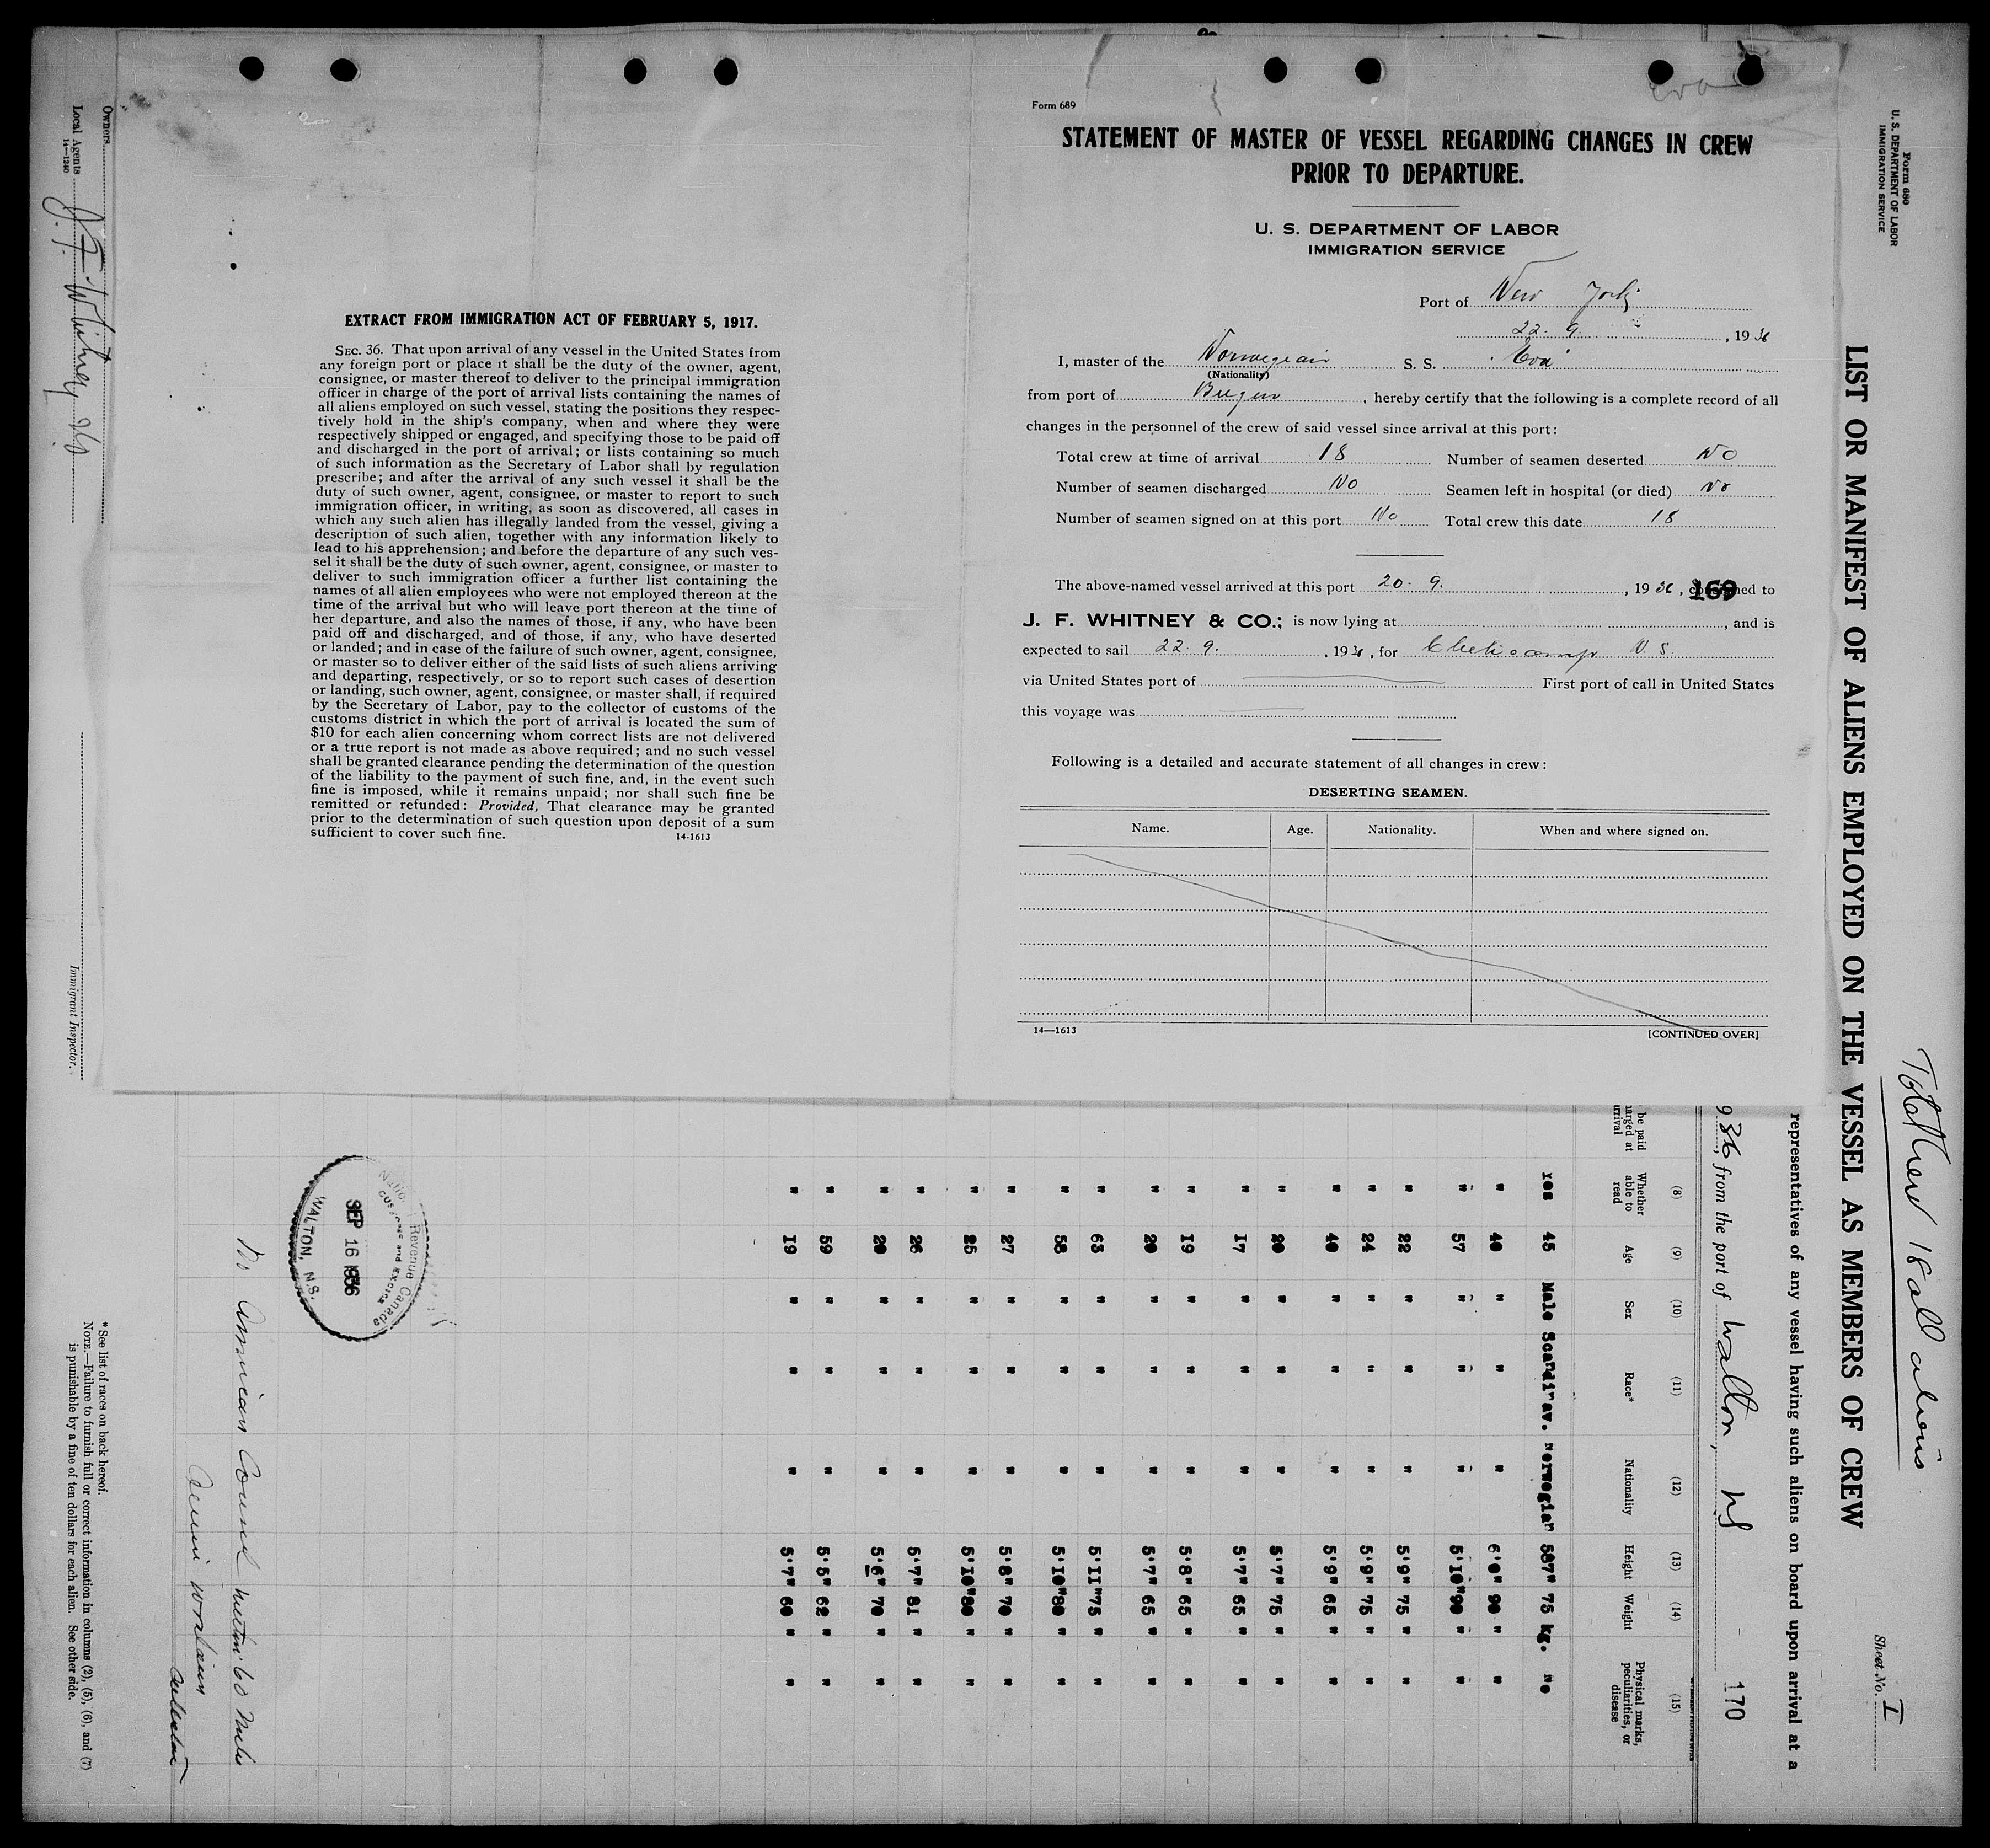 Form 689
STATEMENT OF MASTER OF VESSEL REGARDING CHANGES IN CREW
PRIOR TO DEPARTURE.
U. S. DEPARTMENT OF LABOR
IMMIGRATION SERVICE
Port of New York
22. 9. , 1936
I, master of the Norwegian S. S. "Eva"
(Nationality)
from port of Bergen , hereby certify that the following is a complete record of all
changes in the personnel of the crew of said vessel since arrival at this port:
Total crew at time of arrival 18 Number of seamen deserted No
Number of seamen discharged No Seamen left in hospital (or died) No
Number of seamen signed on at this port No Total crew this date 18
The above-named vessel arrived at this port 20. 9. , 1936, consigned to
169
J. F. WHITNEY & CO.; is now lying at , and is
expected to sail 22. 9. , 1936, for Cheticamp N. S.
via United States port of First port of call in United States
this voyage was
Following is a detailed and accurate statement of all changes in crew:
DESERTING SEAMEN.
Name. Age. Nationality. When and where signed on.
14—1613 [CONTINUED OVER]
EXTRACT FROM IMMIGRATION ACT OF FEBRUARY 5, 1917.
SEC. 36. That upon arrival of any vessel in the United States from
any foreign port or place it shall be the duty of the owner, agent,
consignee, or master thereof to deliver to the principal immigration
officer in charge of the port of arrival lists containing the names of
all aliens employed on such vessel, stating the positions they respec-
tively hold in the ship's company, when and where they were
respectively shipped or engaged, and specifying those to be paid off
and discharged in the port of arrival; or lists containing so much
of such information as the Secretary of Labor shall by regulation
prescribe; and after the arrival of any such vessel it shall be the
duty of such owner, agent, consignee, or master to report to such
immigration officer, in writing, as soon as discovered, all cases in
which any such alien has illegally landed from the vessel, giving a
description of such alien, together with any information likely to
lead to his apprehension; and before the departure of any such ves-
sel it shall be the duty of such owner, agent, consignee, or master to
deliver to such immigration officer a further list containing the
names of all alien employees who were not employed thereon at the
time of the arrival but who will leave port thereon at the time of
her departure, and also the names of those, if any, who have been
paid off and discharged, and of those, if any, who have deserted
or landed; and in case of the failure of such owner, agent, consignee,
or master so to deliver either of the said lists of such aliens arriving
and departing, respectively, or so to report such cases of desertion
or landing, such owner, agent, consignee, or master shall, if required
by the Secretary of Labor, pay to the collector of customs of the
customs district in which the port of arrival is located the sum of
$10 for each alien concerning whom correct lists are not delivered
or a true report is not made as above required; and no such vessel
shall be granted clearance pending the determination of the question
of the liability to the payment of such fine, and, in the event such
fine is imposed, while it remains unpaid; nor shall such fine be
remitted or refunded: Provided, That clearance may be granted
prior to the determination of such question upon deposit of a sum
sufficient to cover such fine. 14-1613
Form 680
U. S. DEPARTMENT OF LABOR
IMMIGRATION SERVICE
Sheet No. I
LIST OR MANIFEST OF ALIENS EMPLOYED ON THE VESSEL AS MEMBERS OF CREW
representatives of any vessel having such aliens on board upon arrival at a
936, from the port of Walton, NS
170
be paid
arged at
arrival
(8) (9) (10) (11) (12) (13) (14) (15)
Whether able to read Age Sex Race* Nationality Height Weight Physical marks, peculiarities, or disease
Yes 45 Male Scandinav. Norwegian 587" 75 kg. No
" 40 " " " 6'0" 90 " "
" 57 " " " 5'10" 90 " "
" 22 " " " 5'9" 75 " "
" 24 " " " 5'9" 75 " "
" 40 " " " 5'9" 65 " "
" 20 " " " 5'7" 75 " "
" 17 " " " 5'7" 65 " "
" 19 " " " 5'8" 65 " "
" 20 " " " 5'7" 65 " "
" 63 " " " 5'11" 75 " "
" 58 " " " 5'10" 80 " "
" 27 " " " 5'8" 70 " "
" 25 " " " 5'10" 80 " "
" 26 " " " 5'7" 81 " "
" 20 " " " 5'6" 70 " "
" 59 " " " 5'5" 62 " "
" 19 " " " 5'7" 60 " "
National Revenue Canada
CUSTOMS and EXCISE
SEP 16 1936
WALTON, N.S.
No American Consul within 60 Miles
* See list of races on back hereof.
NOTE.—Failure to furnish full or correct information in columns (2), (5), (6), and (7)
is punishable by a fine of ten dollars for each alien. See other side.
Owners
Local Agents J. F. Whitney & Co
14—1240
Immigrant Inspector.